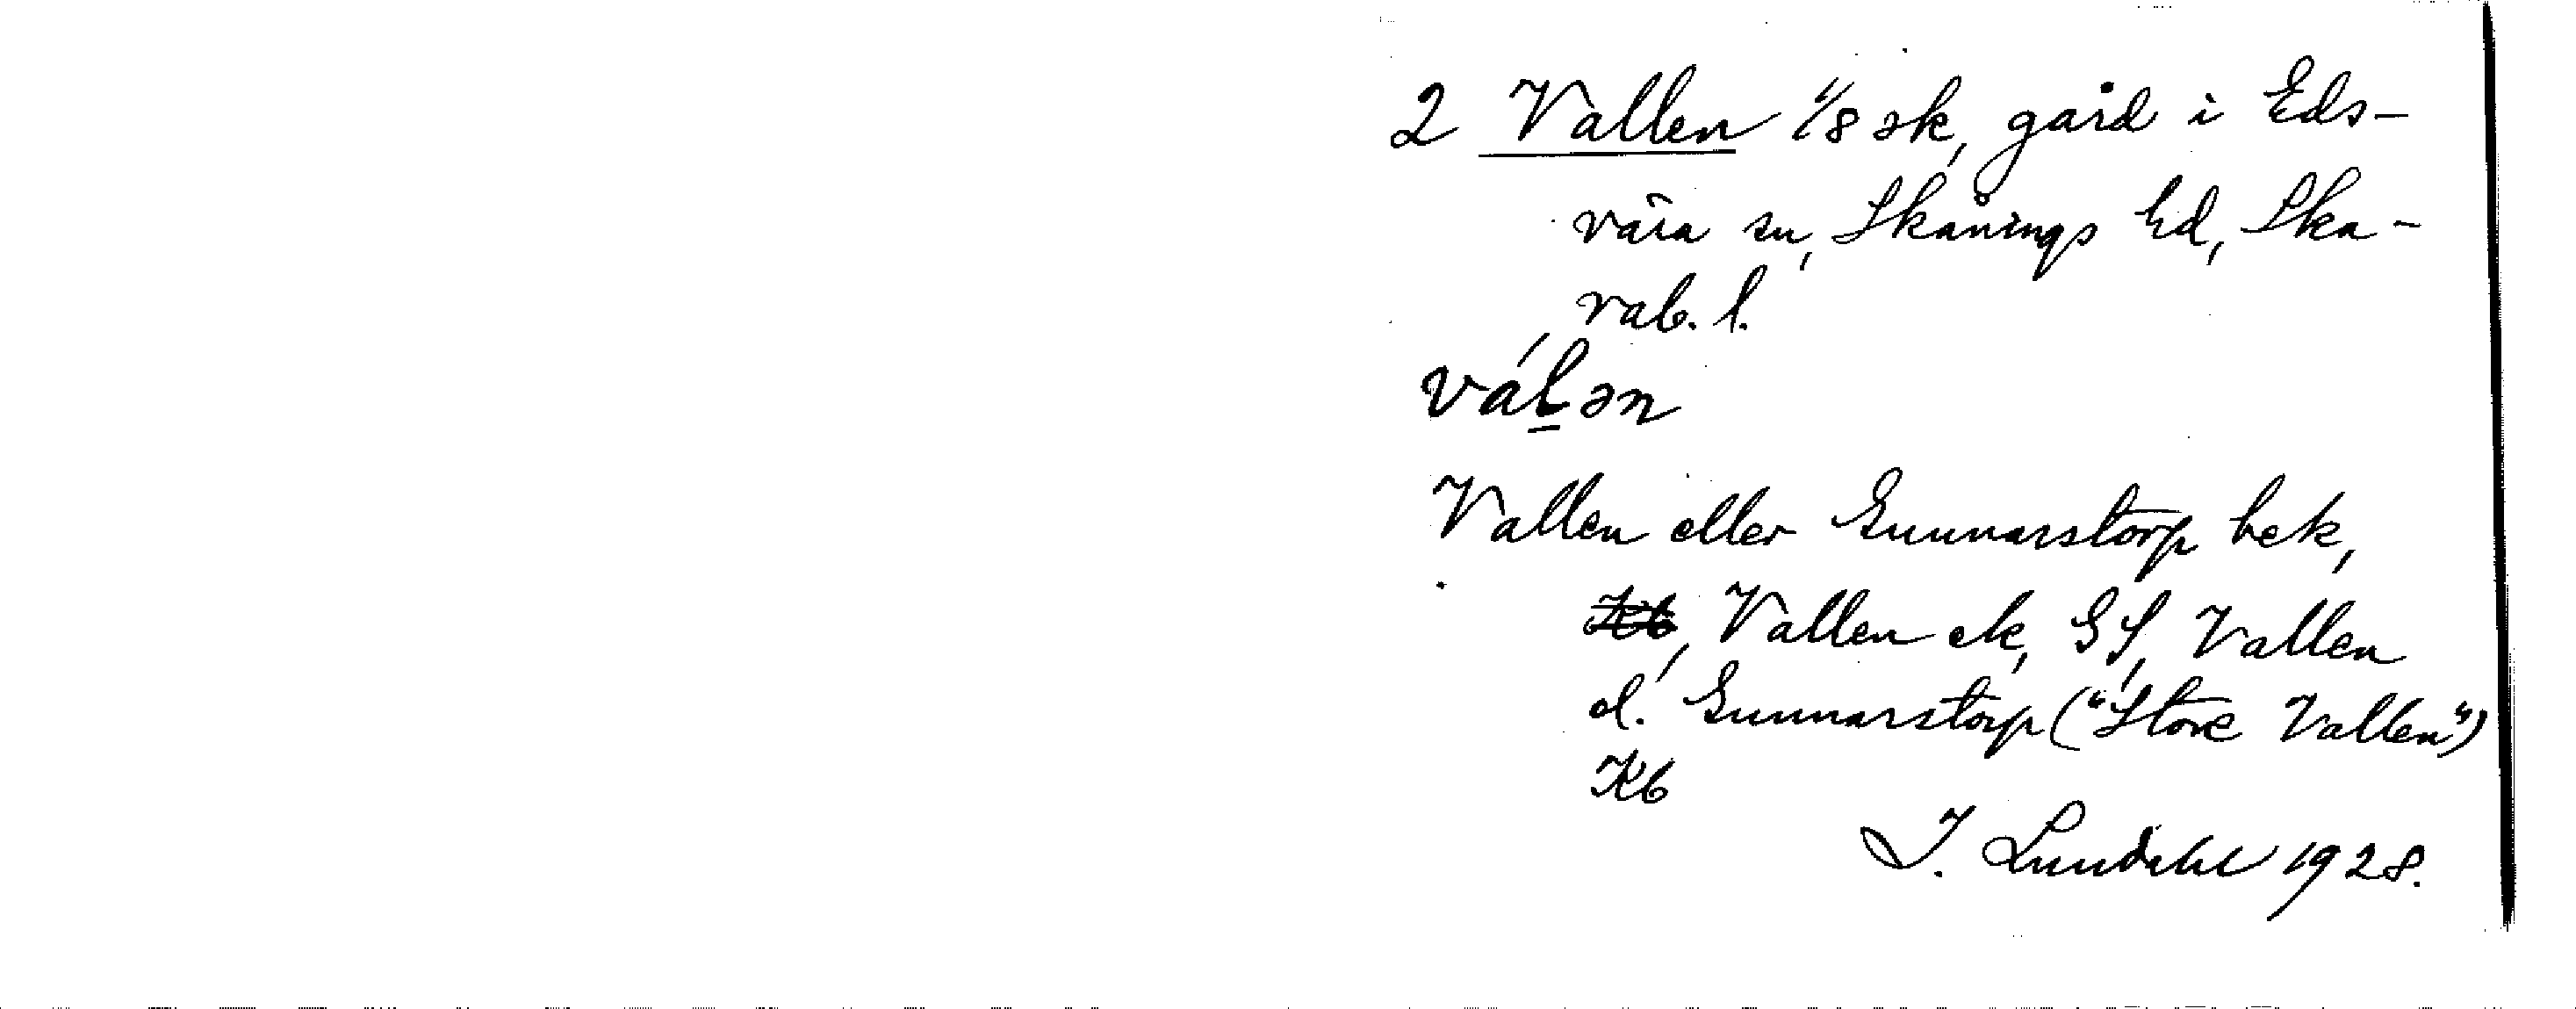 2 Vallen 1/8 sk, gård i Eds-
vära sn, Skånings hd, Ska-
rab. l.
válən
Vallen eller Gunnarstorp hek,
Kb, Vallen ek, GS, Vallen
el. Gunnarstorp ("Store Vallen")
Kb
I. Lundahl 1928.